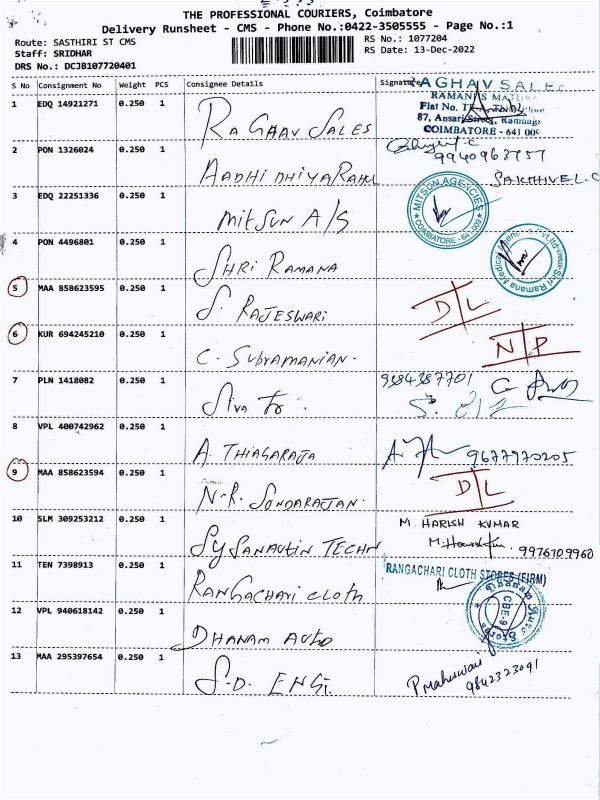 THE PROFESSIONAL COURIERS, Coimbatore
Delivery Runsheet - CMS - Phone No.:0422-3505555 - Page No.:1
Route: SASTHIRI ST CMS
RS No.: 1077204
Staff: SRIDHAR
RS Date: 13-Dec-2022
DRS No.: DCJB107720401
S No Consignment No Weight PCS Consignee Details Signature
RAGHAV SALES
1 EDQ 14921271 0.250 1 RAGHAV SALES
Flat No.
87, Ansari Street, Ramnagar
COIMBATORE - 641 009
2 PON 1326024 0.250 1 AADHI DHIYA RAHU
9940963757
SAKTHIVEL.C
3 EDQ 22251336 0.250 1 MITSUN A/S
MITSON AGENCIES
COIMBATORE - 641 009
4 PON 4496801 0.250 1 SHRI RAMANA
Siri Ramana Medical
5 MAA 858623595 0.250 1 S. RAJESWARI D/L
6 KUR 694245210 0.250 1 C. SUBRAMANIAN. N/P
7 PLN 1418082 0.250 1 SIVA
9384387701
8 VPL 400742962 0.250 1 A. THIAGARAJA 9677970205
9 MAA 858623594 0.250 1 N.R. SONDARAJAN. D/L
10 SLM 309253212 0.250 1 SYSANAVTIN TECHN
M. HARISH KUMAR
9976109960
11 TEN 7398913 0.250 1 RANGACHARI CLOTH
RANGACHARI CLOTH STORES (FIRM)
12 VPL 940618142 0.250 1 DHANAM AUTO
Dhanam Auto Stores
CBE-9
13 MAA 295397654 0.250 1 S.D. ENGI.
P. Maheswari
9842323091